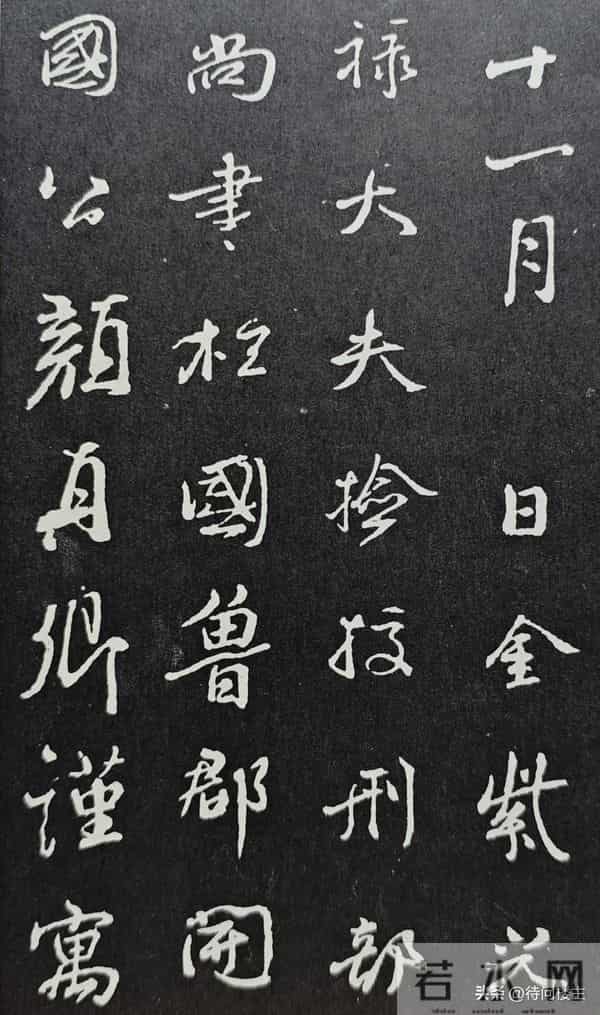 十一月 日金紫光
禄大夫捡挍刑部
尚書柱國魯郡開
國公顔真卿謹寓
若水网
头条@待问楼主